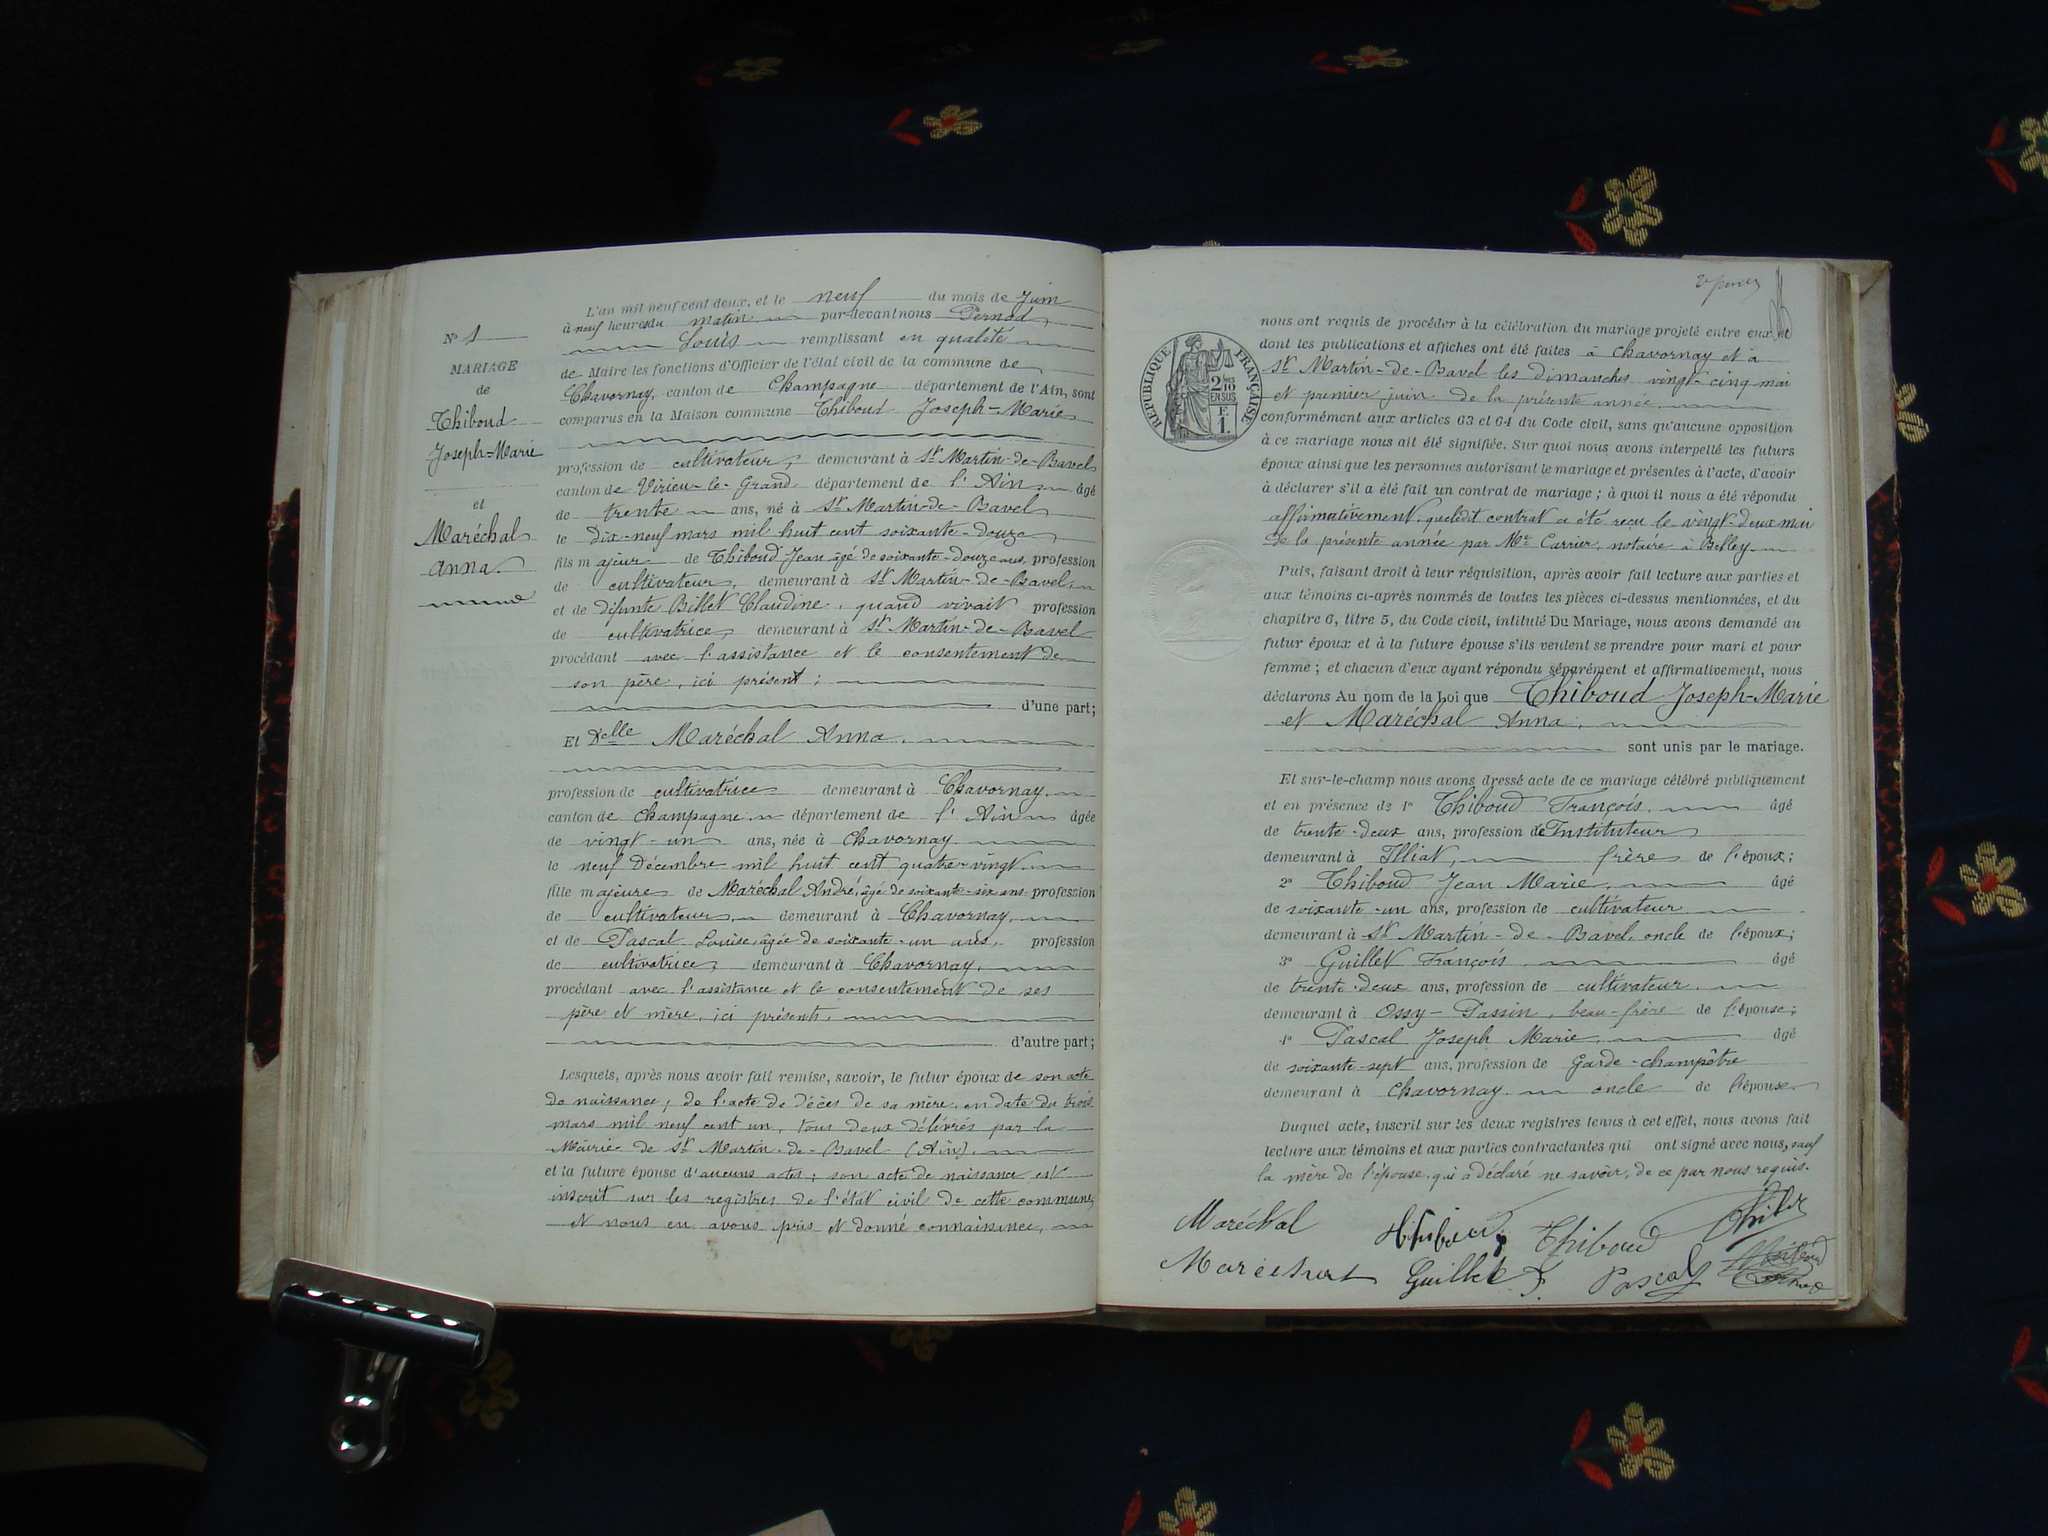 L'an mil neuf cent deux, et le neuf du mois de Juin
à neuf heures du matin par-devant nous Pernod
Louis remplissant en qualité
de Maire les fonctions d'Officier de l'état civil de la commune de
Chavornay, canton de Champagne département de l'Ain, sont
comparus en la Maison commune Thiboud Joseph-Marie
N° 1
MARIAGE
de
Thiboud
Joseph-Marie
et
Maréchal
Anna.
profession de cultivateur, demeurant à St Martin-de-Bavel
canton de Virieu-le-Grand département de l'Ain âgé
de trente ans, né à St Martin-de-Bavel
le Dix-neuf mars mil huit cent soixante-douze
fils majeur de Thiboud Jean âgé de soixante-douze ans, profession
de cultivateur, demeurant à St Martin-de-Bavel,
et de défunte Billet Claudine, quand vivait profession
de cultivatrice, demeurant à St Martin-de-Bavel
procédant avec l'assistance et le consentement de
son père, ici présent;
d'une part;
Et Delle Maréchal Anna,
profession de cultivatrice demeurant à Chavornay,
canton de Champagne département de l'Ain âgée
de vingt-un ans, née à Chavornay
le neuf Décembre mil huit cent quatre-vingt
fille majeure de Maréchal André, âgé de soixante-six ans profession
de cultivateur, demeurant à Chavornay,
et de Pascal Louise, âgée de soixante-un ans, profession
de cultivatrice, demeurant à Chavornay,
procédant avec l'assistance et le consentement de ses
père et mère, ici présents,
d'autre part;
Lesquels, après nous avoir fait remise, savoir, le futur époux de son acte
de naissance; de l'acte de décès de sa mère en date du trois
mars mil neuf cent un, tous deux délivrés par la
Mairie de St Martin-de-Bavel (Ain),
et la future épouse d'aucuns actes; son acte de naissance est
inscrit sur les registres de l'état civil de cette commune,
et nous en avons pris et donné connaissance,
RÉPUBLIQUE FRANÇAISE
2/10 EN SUS
1 F.
nous ont requis de procéder à la célébration du mariage projeté entre eux et
dont les publications et affiches ont été faites à Chavornay et à
St Martin-de-Bavel les dimanches vingt-cinq mai
et premier juin de la présente année
conformément aux articles 63 et 64 du Code civil, sans qu'aucune opposition
à ce mariage nous ait été signifiée. Sur quoi nous avons interpellé les futurs
époux ainsi que les personnes autorisant le mariage et présentes à l'acte, d'avoir
à déclarer s'il a été fait un contrat de mariage; à quoi il nous a été répondu
affirmativement, que ledit contrat a été reçu le vingt-deux mai
de la présente année par Me Carrier, notaire à Belley
Puis, faisant droit à leur réquisition, après avoir fait lecture aux parties et
aux témoins ci-après nommés de toutes les pièces ci-dessus mentionnées, et du
chapitre 6, titre 5, du Code civil, intitulé Du Mariage, nous avons demandé au
futur époux et à la future épouse s'ils veulent se prendre pour mari et pour
femme; et chacun d'eux ayant répondu séparément et affirmativement, nous
déclarons Au nom de la Loi que Thiboud Joseph-Marie
et Maréchal Anna,
sont unis par le mariage.
Et sur-le-champ nous avons dressé acte de ce mariage célébré publiquement
et en présence de 1° Thiboud François, âgé
de trente-deux ans, profession de Instituteur
demeurant à Illiat, frère de l'époux;
2° Thiboud Jean Marie, âgé
de soixante-un ans, profession de cultivateur
demeurant à St Martin-de-Bavel, oncle de l'époux;
3° Guillet François, âgé
de trente-deux ans, profession de cultivateur,
demeurant à Ossy-Passin, beau-frère de l'épouse;
4° Pascal Joseph Marie, âgé
de soixante-sept ans, profession de Garde-champêtre
demeurant à Chavornay oncle de l'épouse
Duquel acte, inscrit sur les deux registres tenus à cet effet, nous avons fait
lecture aux témoins et aux parties contractantes qui ont signé avec nous, sauf
la mère de l'épouse qui a déclaré ne savoir, de ce par nous requis.
Maréchal Thiboud
Guillet F. Pascal